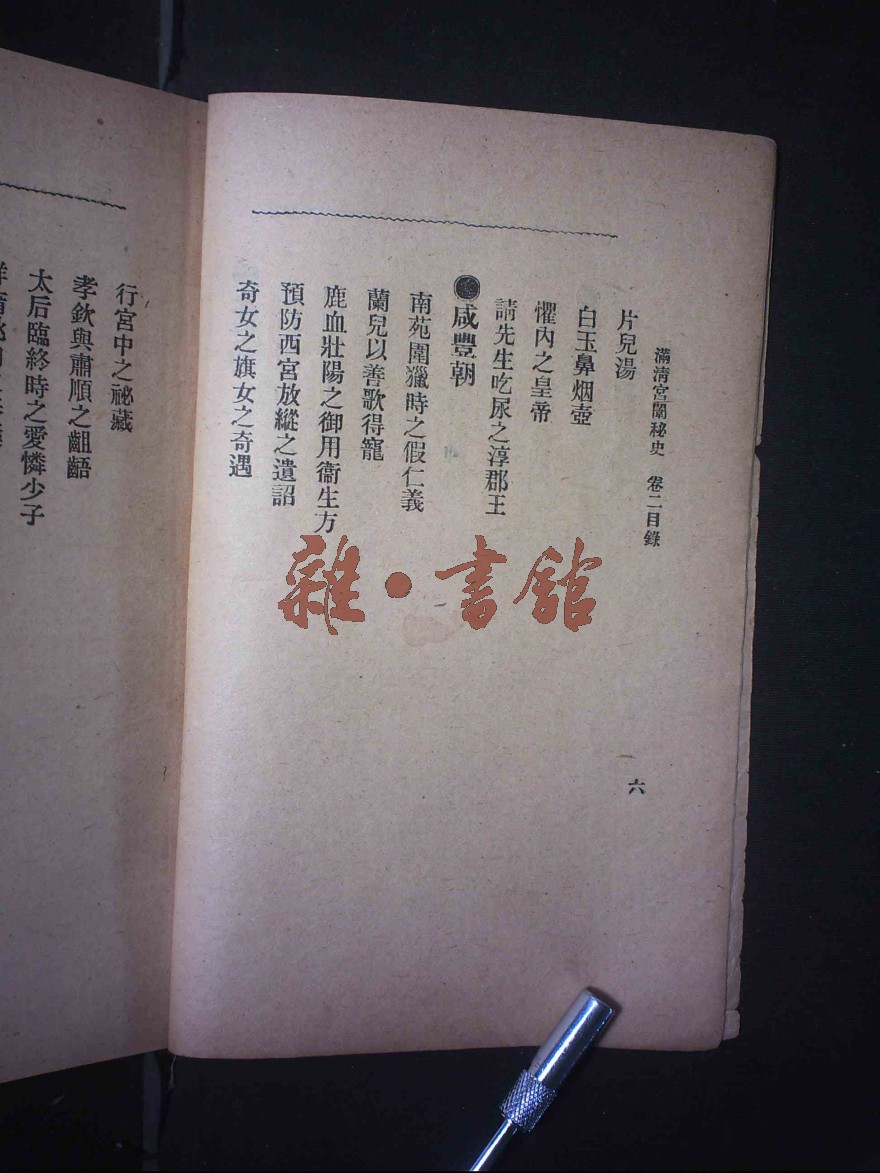 滿清宮闈秘史　卷二目錄
六
片兒湯
白玉鼻烟壺
懼內之皇帝
請先生吃尿之淳郡王
●咸豐朝
南苑圍獵時之假仁義
蘭兒以善歌得寵
鹿血壯陽之御用衞生方
預防西宮放縱之遺詔
奇女之旗女之奇遇
行宮中之祕藏
孝欽與肅順之齟齬
太后臨終時之愛憐少子
雜·書館